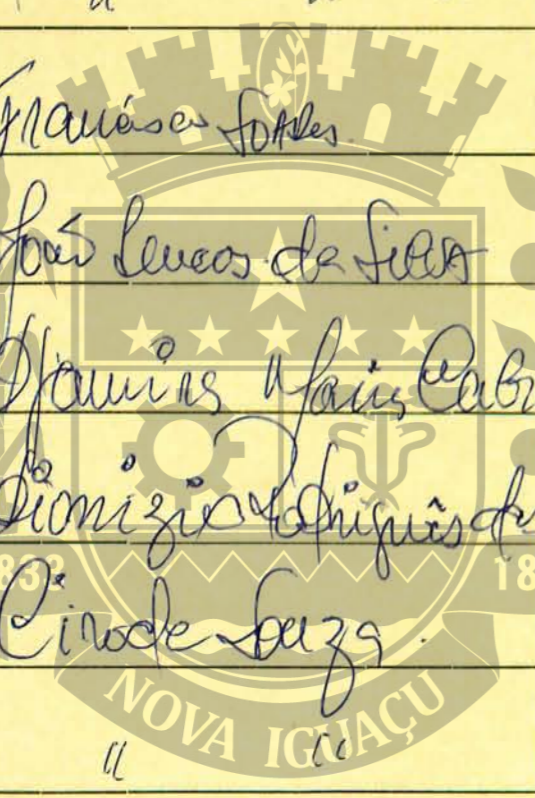 " "
Francisco Soares.
João Lucas da Silva
Maria Cab
Dionizio Rodrigues d
Ciro de Souza.
1833 18
NOVA IGUAÇU
" "